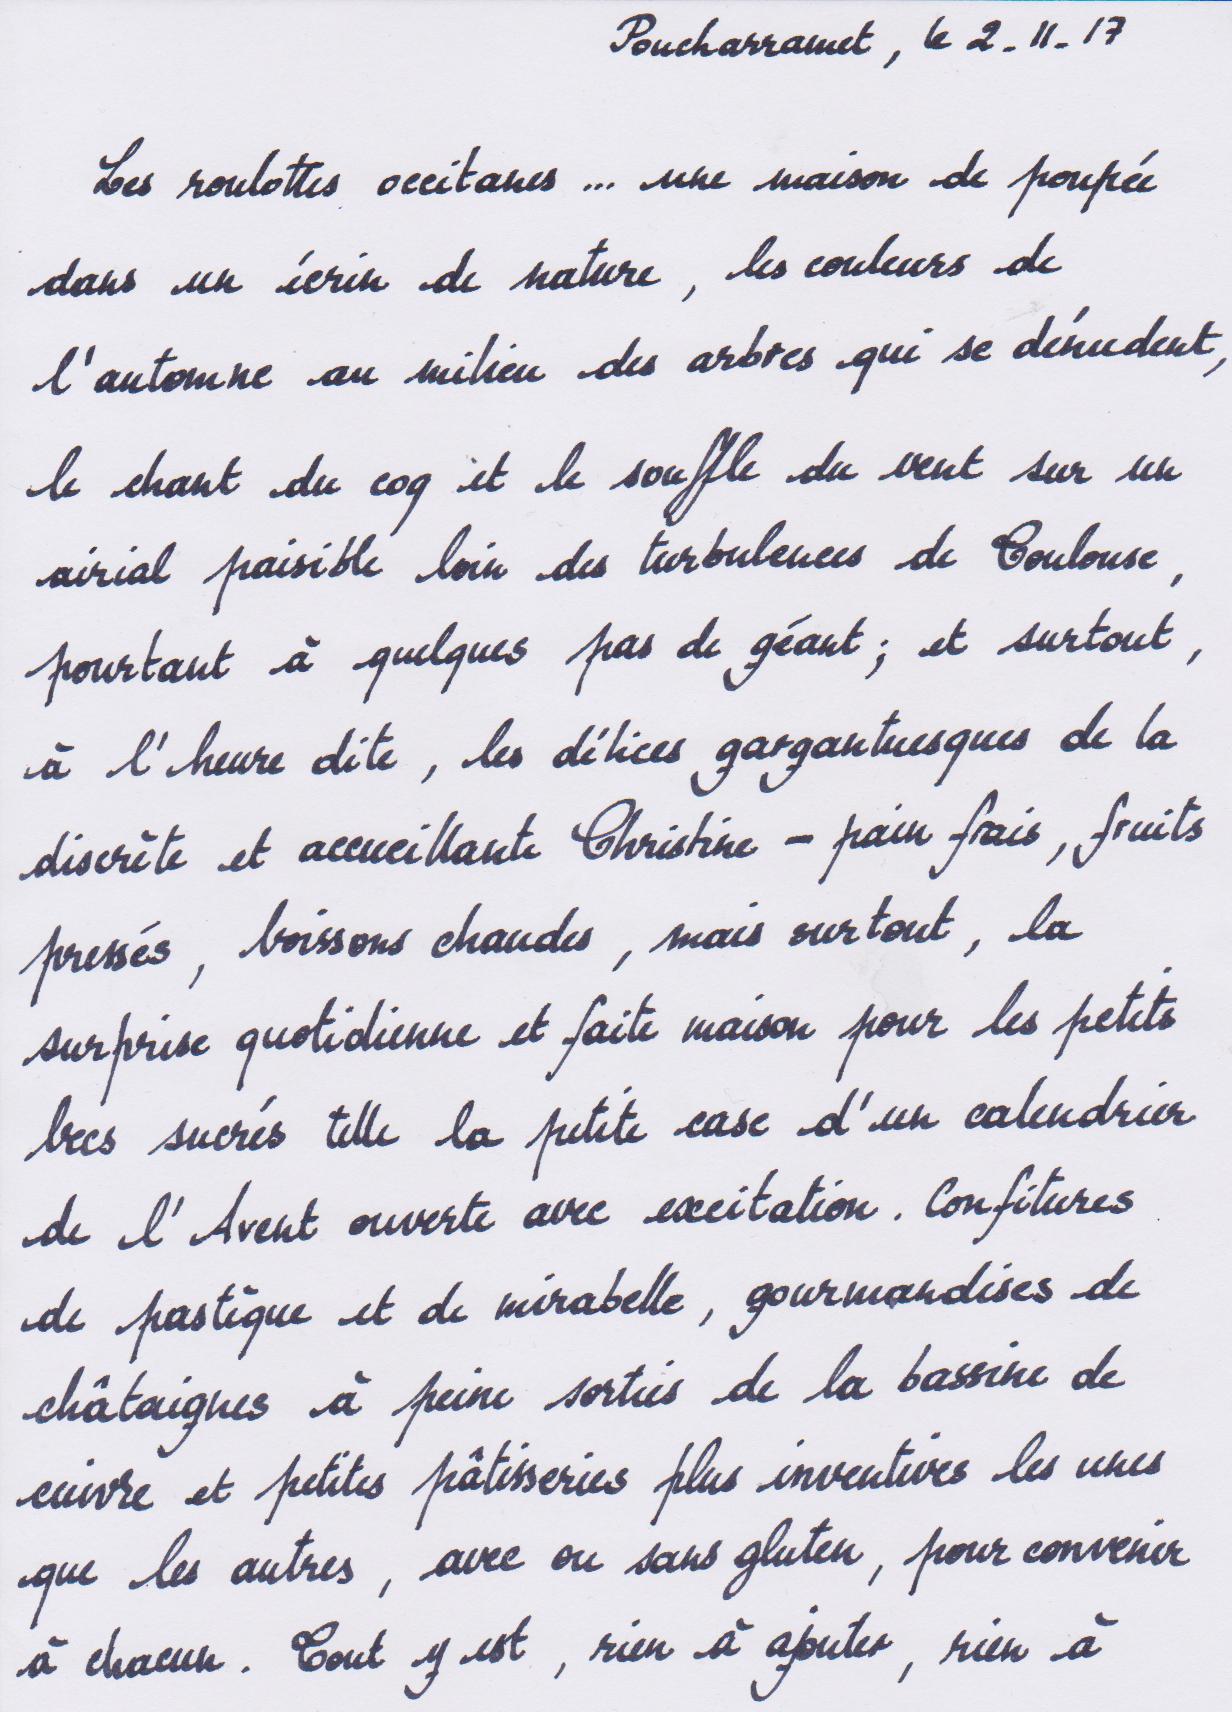 Poucharramet, le 2-11-17
Les roulottes occitanes ... une maison de poupée
dans un écrin de nature, les couleurs de
l'automne au milieu des arbres qui se dénudent,
le chant du coq et le souffle du vent sur un
airial paisible loin des turbulences de Toulouse,
pourtant à quelques pas de géant ; et surtout,
à l'heure dite, les délices gargantuesques de la
discrète et accueillante Christine - pain frais, fruits
pressés, boissons chaudes, mais surtout, la
surprise quotidienne et faite maison pour les petits
becs sucrés telle la petite case d'un calendrier
de l'Avent ouverte avec excitation. Confitures
de pastèque et de mirabelle, gourmandises de
châtaignes à peine sorties de la bassine de
cuivre et petites pâtisseries plus inventives les unes
que les autres, avec ou sans gluten, pour convenir
à chacun. Tout y est, rien à ajouter, rien à